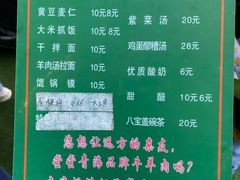 黄豆麦仁 10元8元
大米抓饭 10元8元
干拌面 10元
羊肉汤拉面 10元
馄锅馍 10元
紫菜汤 20元
鸡蛋醪糟汤 28元
优质酸奶 6元
甜醅 10元6元
八宝盖碗茶 20元
您想让远方的亲友,
尝尝青海品牌牛羊肉吗?